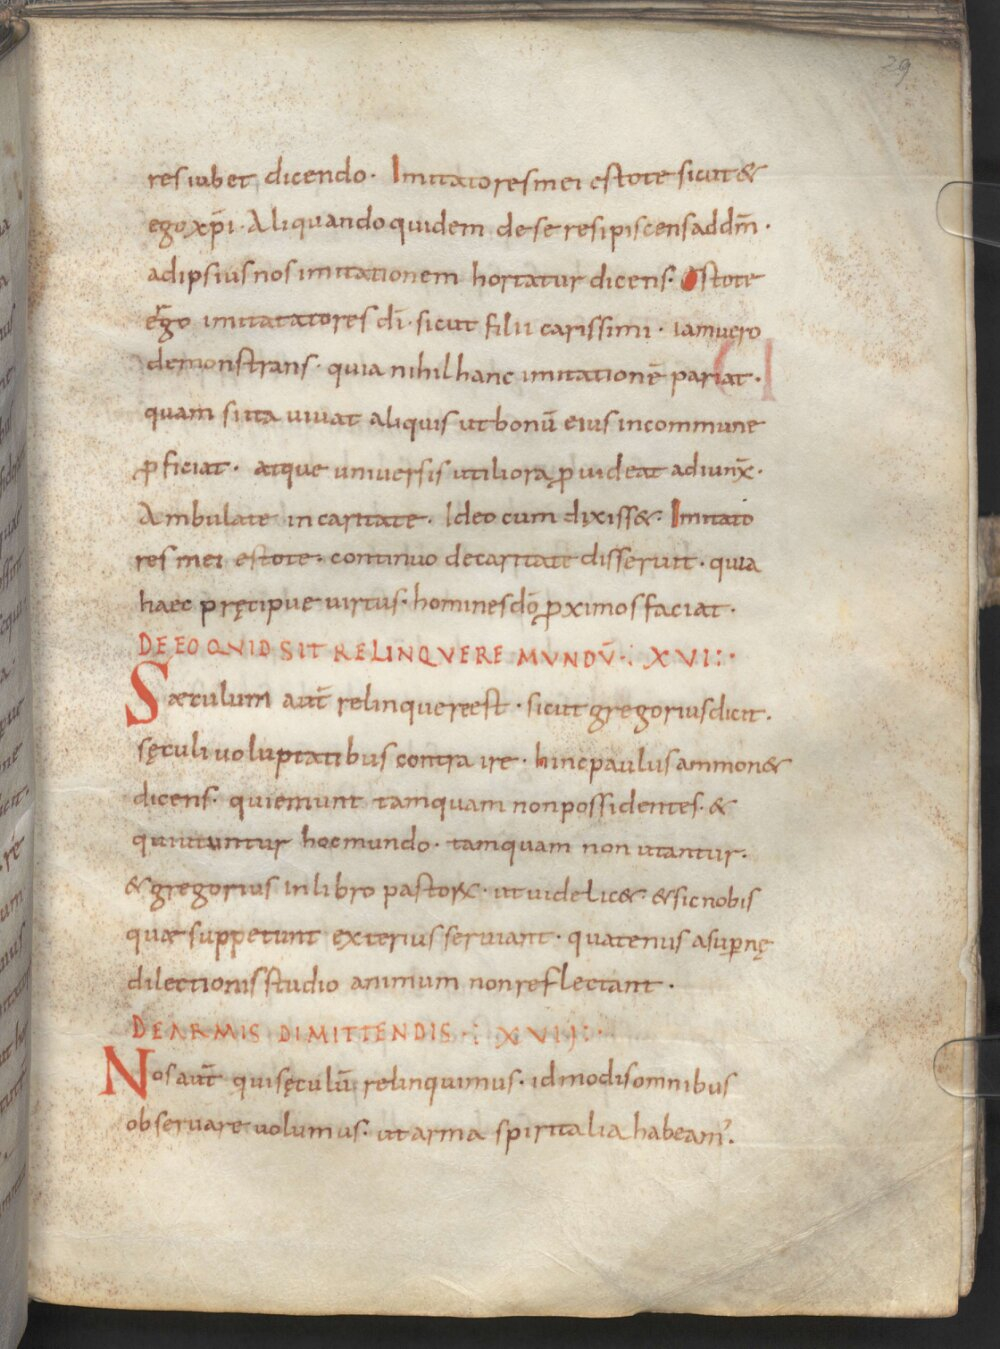 29
res iubet dicendo · Imitatores mei estote sicut &
ego xp̄i · Aliquando quidem de se resipiscens ad dm̄ ·
ad ipsius nos imitationem hortatur dicens · Estote
ergo imitatatores dī · sicut filii carissimi · iam uero
demonstrans · quia nihil hanc imitationē pariat ·
quam si ita uiuat aliquis ut bonū eius in commune
ꝓficiat · atque uniuersis utiliora ꝓuideat adiunx̄ ·
Ambulate in caritate · Ideo cum dixiss& · Imitato
res mei estote · continuo de caritate disseruit · quia
haec pręcipue uirtus · homines dō ꝓximos faciat ·
DE EO QUID SIT RELINQVERE MVNDŪ · XVI ·
Sæculum aut̄ relinquere est · sicut gregorius dicit ·
sęculi uoluptatibus contra ire · hinc paulus ammon&
dicens · qui emunt tamquam non possidentes · &
qui utuntur hoc mundo · tamquam non utantur ·
& gregorius in libro pastorꝝ · ut uidelic& · & sic nobis
quæ suppetunt exterius seruiant · quatenus a suꝑnę
dilectionis studio animum non reflectant ·
DE ARMIS DIMITTENDIS · XVII ·
Nos aut̄ qui sęculū relinquimus · id modis omnibus
obseruare uolumus · ut arma spiritalia habeam᾽ ·